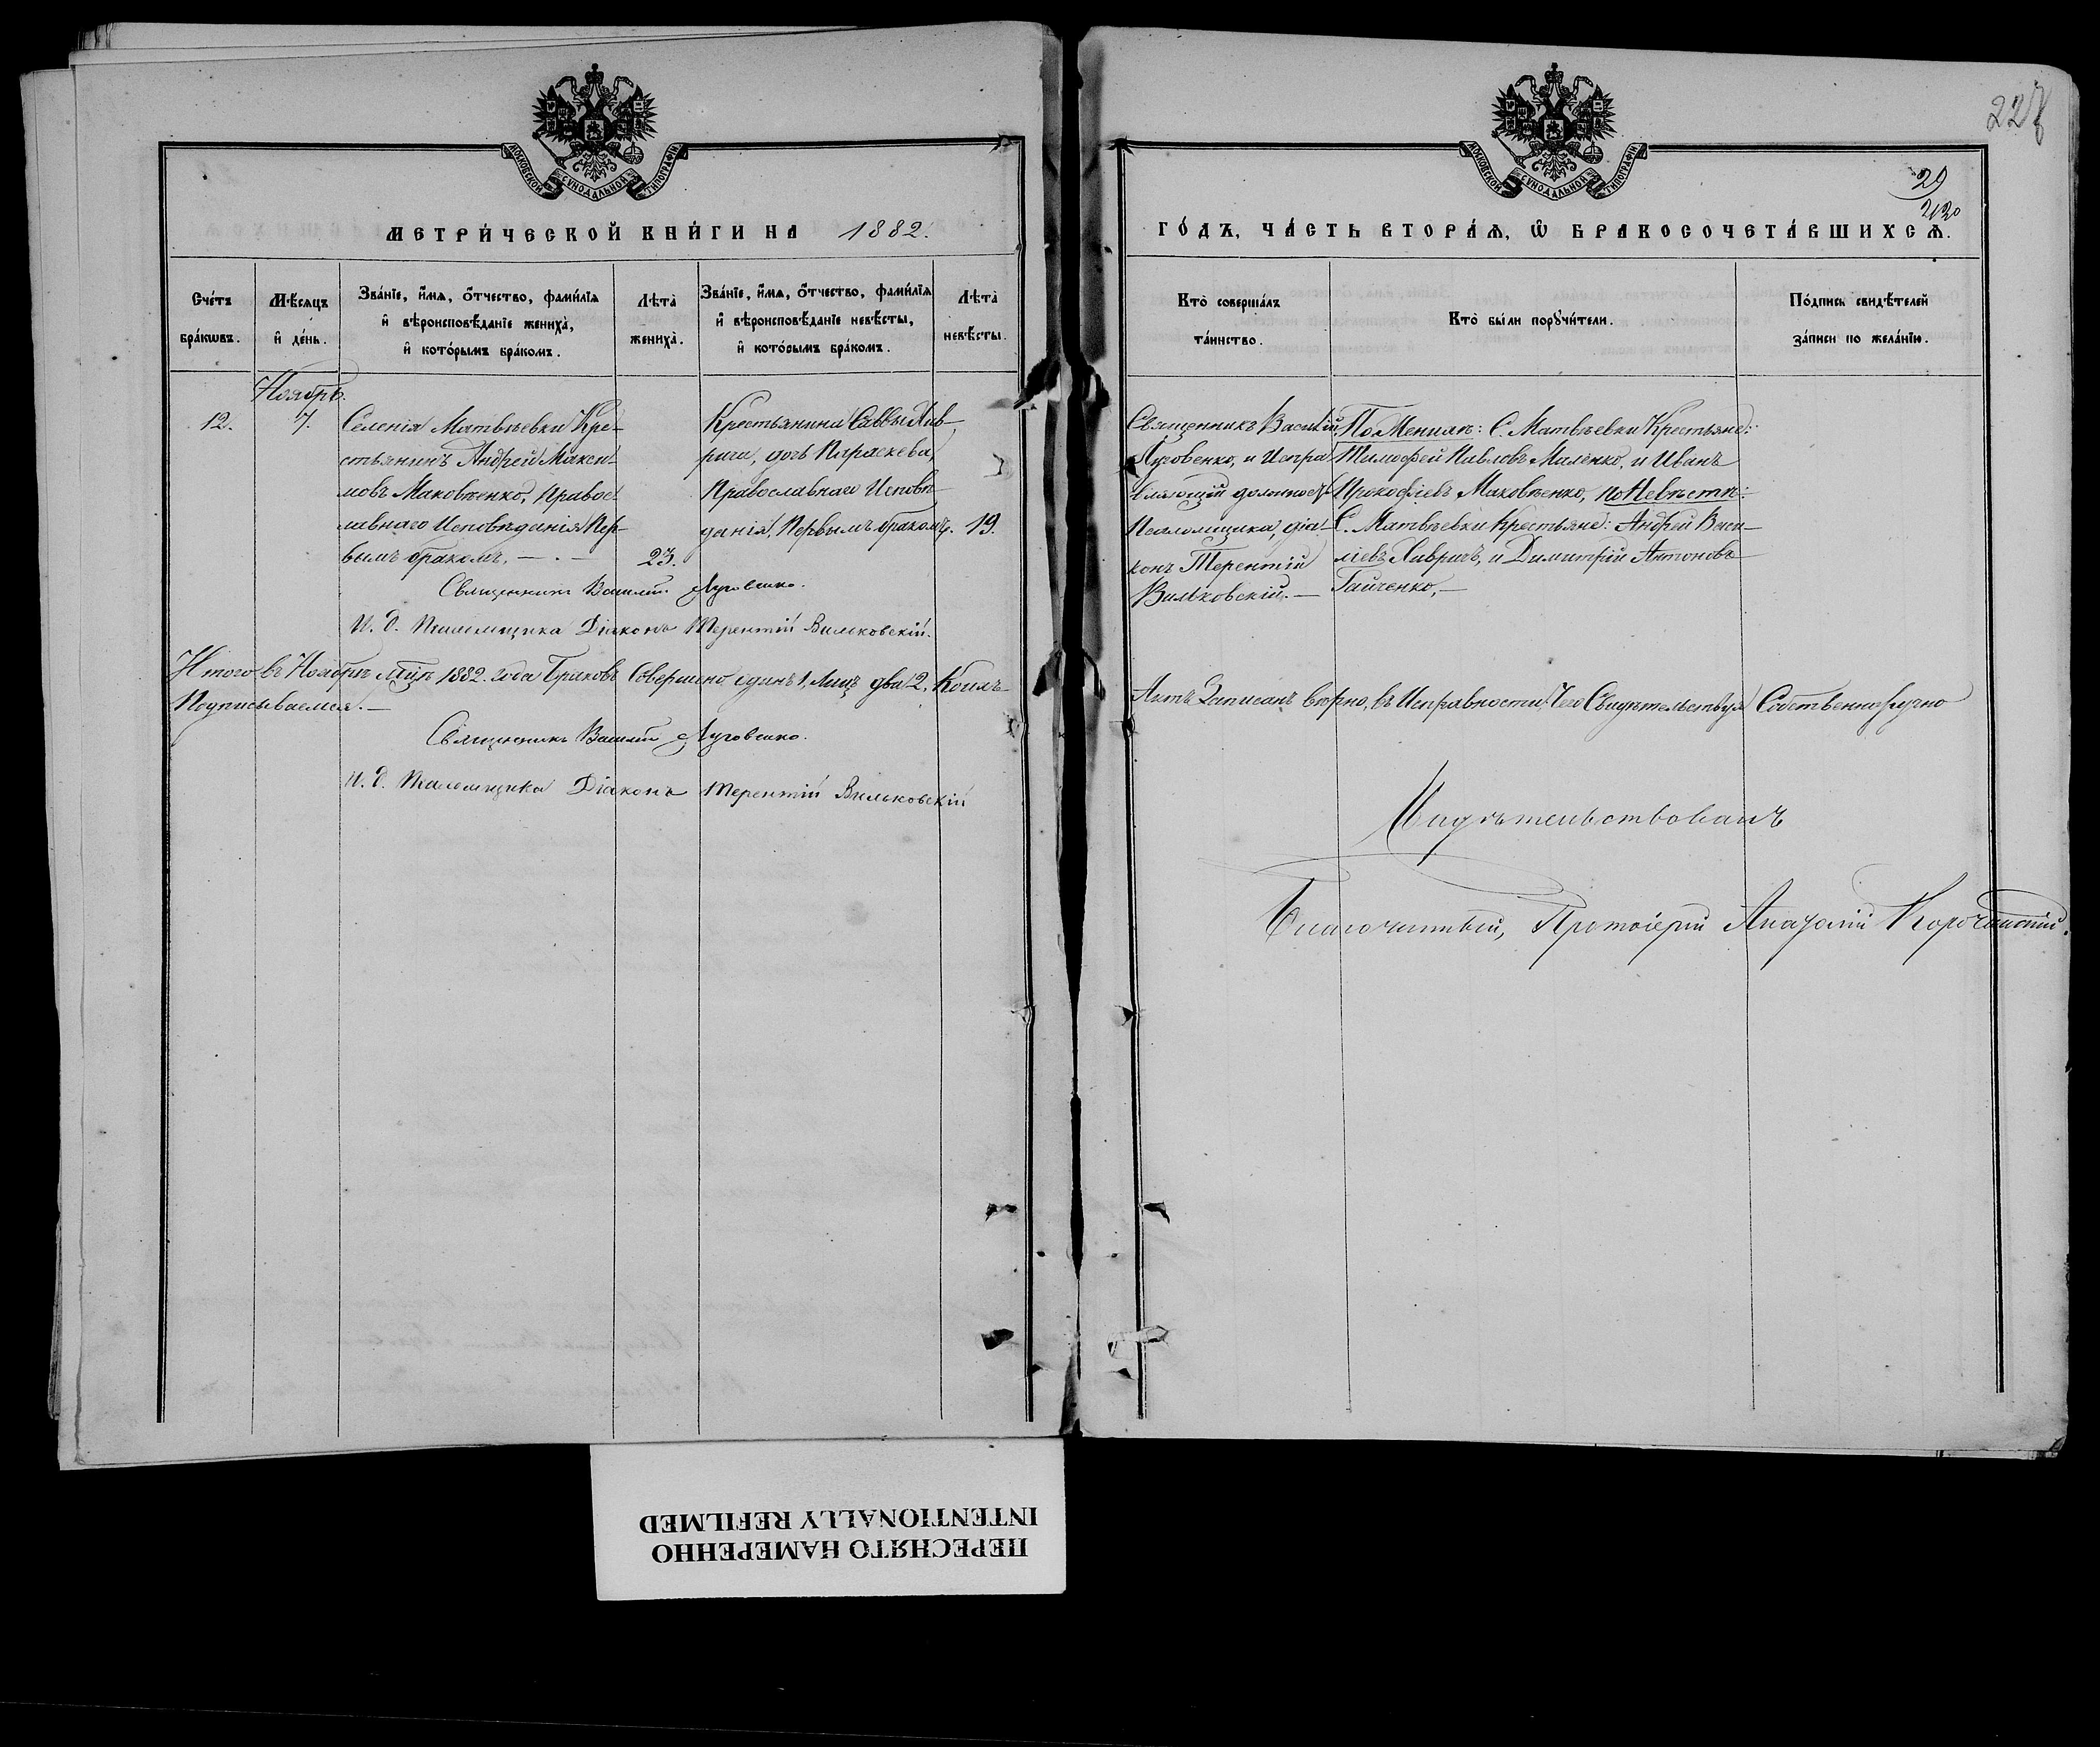 МОСКОВСКОЙ СѴНОДАЛЬНОЙ ТИПОГРАФІИ
МЕТРИ́ЧЕСКОЙ КНИ́ГИ НА 1882.
Сче́тъ бра́кωвъ.
Мѣ́сяцъ и҆ де́нь.
Зва́нїе, и҆́мѧ, ѻ҆́тчество, фамилїѧ
и҆ вѣроисповѣ́данїе жениха̀,
и҆ кото́рымъ бра́комъ.
Лѣта̀ жениха̀.
Зва́нїе, и҆́мѧ, ѻ҆́тчество, фамилїѧ
и҆ вѣроисповѣ́данїе невѣ́сты,
и҆ кото́рымъ бра́комъ.
Лѣта̀ невѣ́сты.
Ноябрь.
12.
7.
Селенія Матвѣевки Кре-
стьянинъ Андрей Макси-
мовъ Маковѣенко, Правос-
лавнаго Исповѣданія Пер-
вымъ бракомъ. — . —
23.
Крестьянина Саввы Лав-
рича, дочь Параскева
Православнаго Исповѣ-
данія, Первымъ бракомъ.
19.
Священникъ Василій Луговенко.
И. д. Псаломщика Діаконъ Терентій Вильковскій.
Итого въ Ноябрѣ мцѣ 1882. года Браковъ Совершено одинъ 1, Лицъ два 2, Коимъ
Подписываемся. —
Священникъ Василій Луговенко.
И. д. Псаломщика Діаконъ Терентій Вильковскій
227
МОСКОВСКОЙ СѴНОДАЛЬНОЙ ТИПОГРАФІИ
29
ГО́ДЪ, ЧА́СТЬ ВТОРА́Ѧ, Ѡ БРАКОСОЧЕТА́ВШИХСѦ.
Кто̀ соверша́лъ та́инство.
Кто̀ бы́ли порꙋчи́тели.
По́дписи свидѣ́телей за́писи по жела́нїю.
Священникъ Василій
Луговенко, и Испра-
вляющій должность
Псаломщика, діа-
конъ Терентій
Вильковскій. —
По Женихѣ: С. Матвѣевки Крестьяне:
Тимофей Павловъ Маленко, и Иванъ
Прокофіевъ Маковѣенко, по Невѣстѣ:
С. Матвѣевки Крестьяне: Андрей Васи-
ліевъ Лавричъ, и Димитрій Антоновъ
Гайченко, —
Актъ Записанъ вѣрно, въ Исправности, Чего Свидѣтельствуя Собственноручно
Свидѣтельствовалъ
Благочинный, Протоіерей Анатолій Корочанскій.
ПЕРЕСНЯТО НАМЕРЕННО
INTENTIONALLY REFILMED